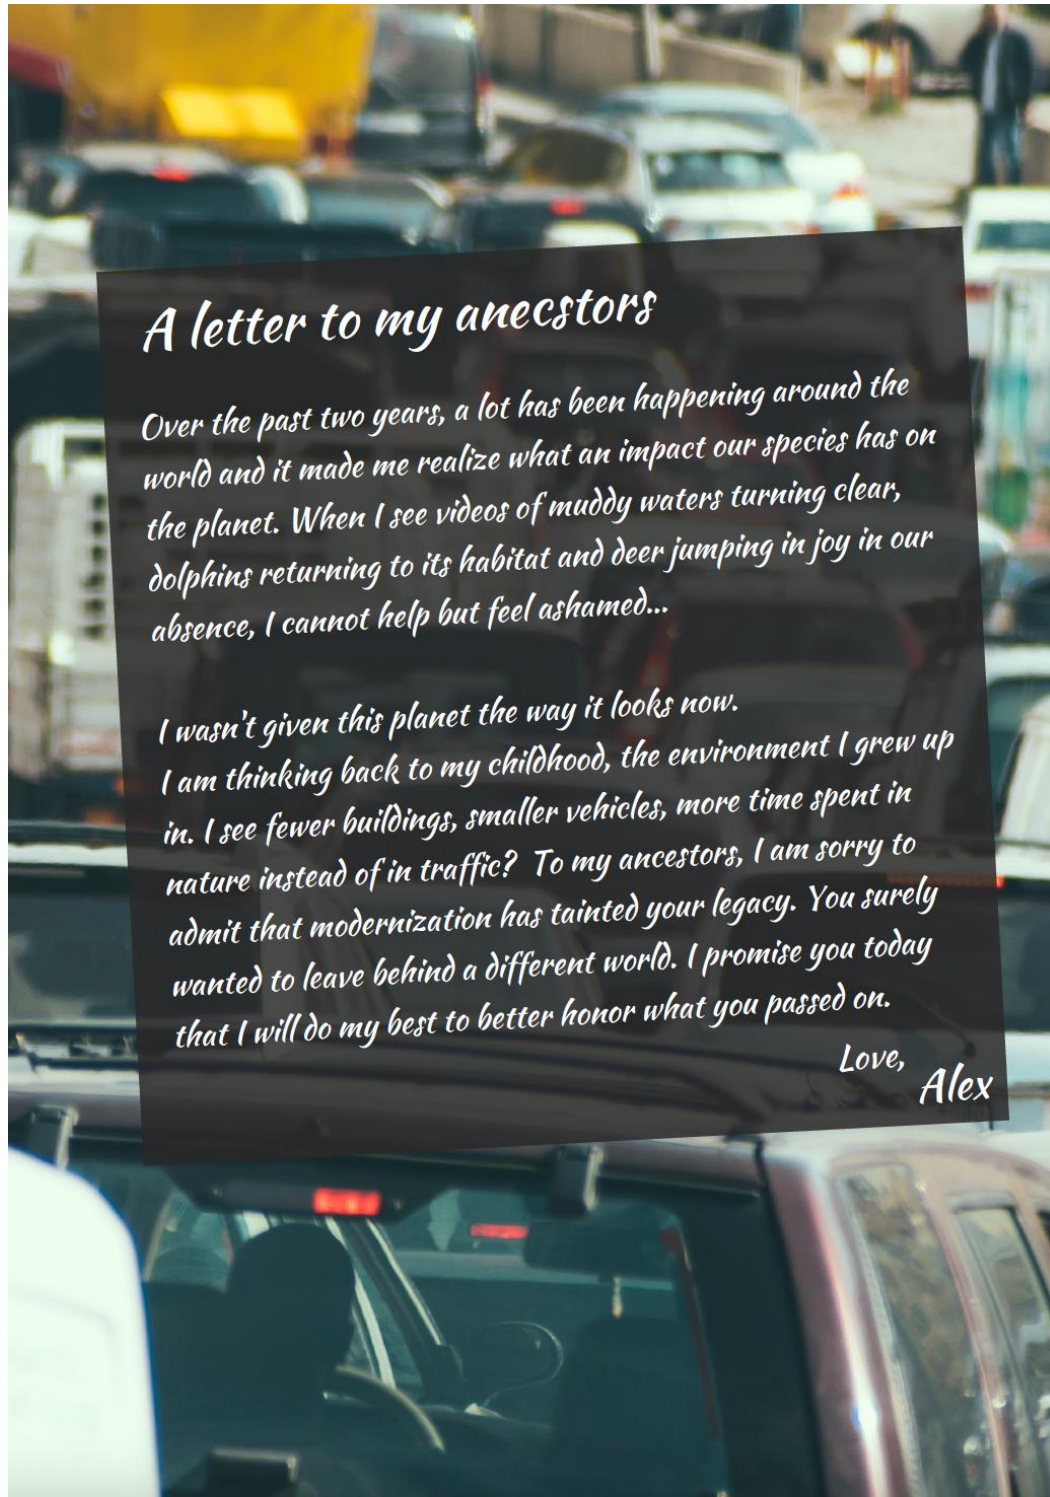 A letter to my anecstors
Over the past two years, a lot has been happening around the
world and it made me realize what an impact our species has on
the planet. When I see videos of muddy waters turning clear,
dolphins returning to its habitat and deer jumping in joy in our
absence, I cannot help but feel ashamed...
I wasn't given this planet the way it looks now.
I am thinking back to my childhood, the environment I grew up
in. I see fewer buildings, smaller vehicles, more time spent in
nature instead of in traffic? To my ancestors, I am sorry to
admit that modernization has tainted your legacy. You surely
wanted to leave behind a different world. I promise you today
that I will do my best to better honor what you passed on.
Love,
Alex